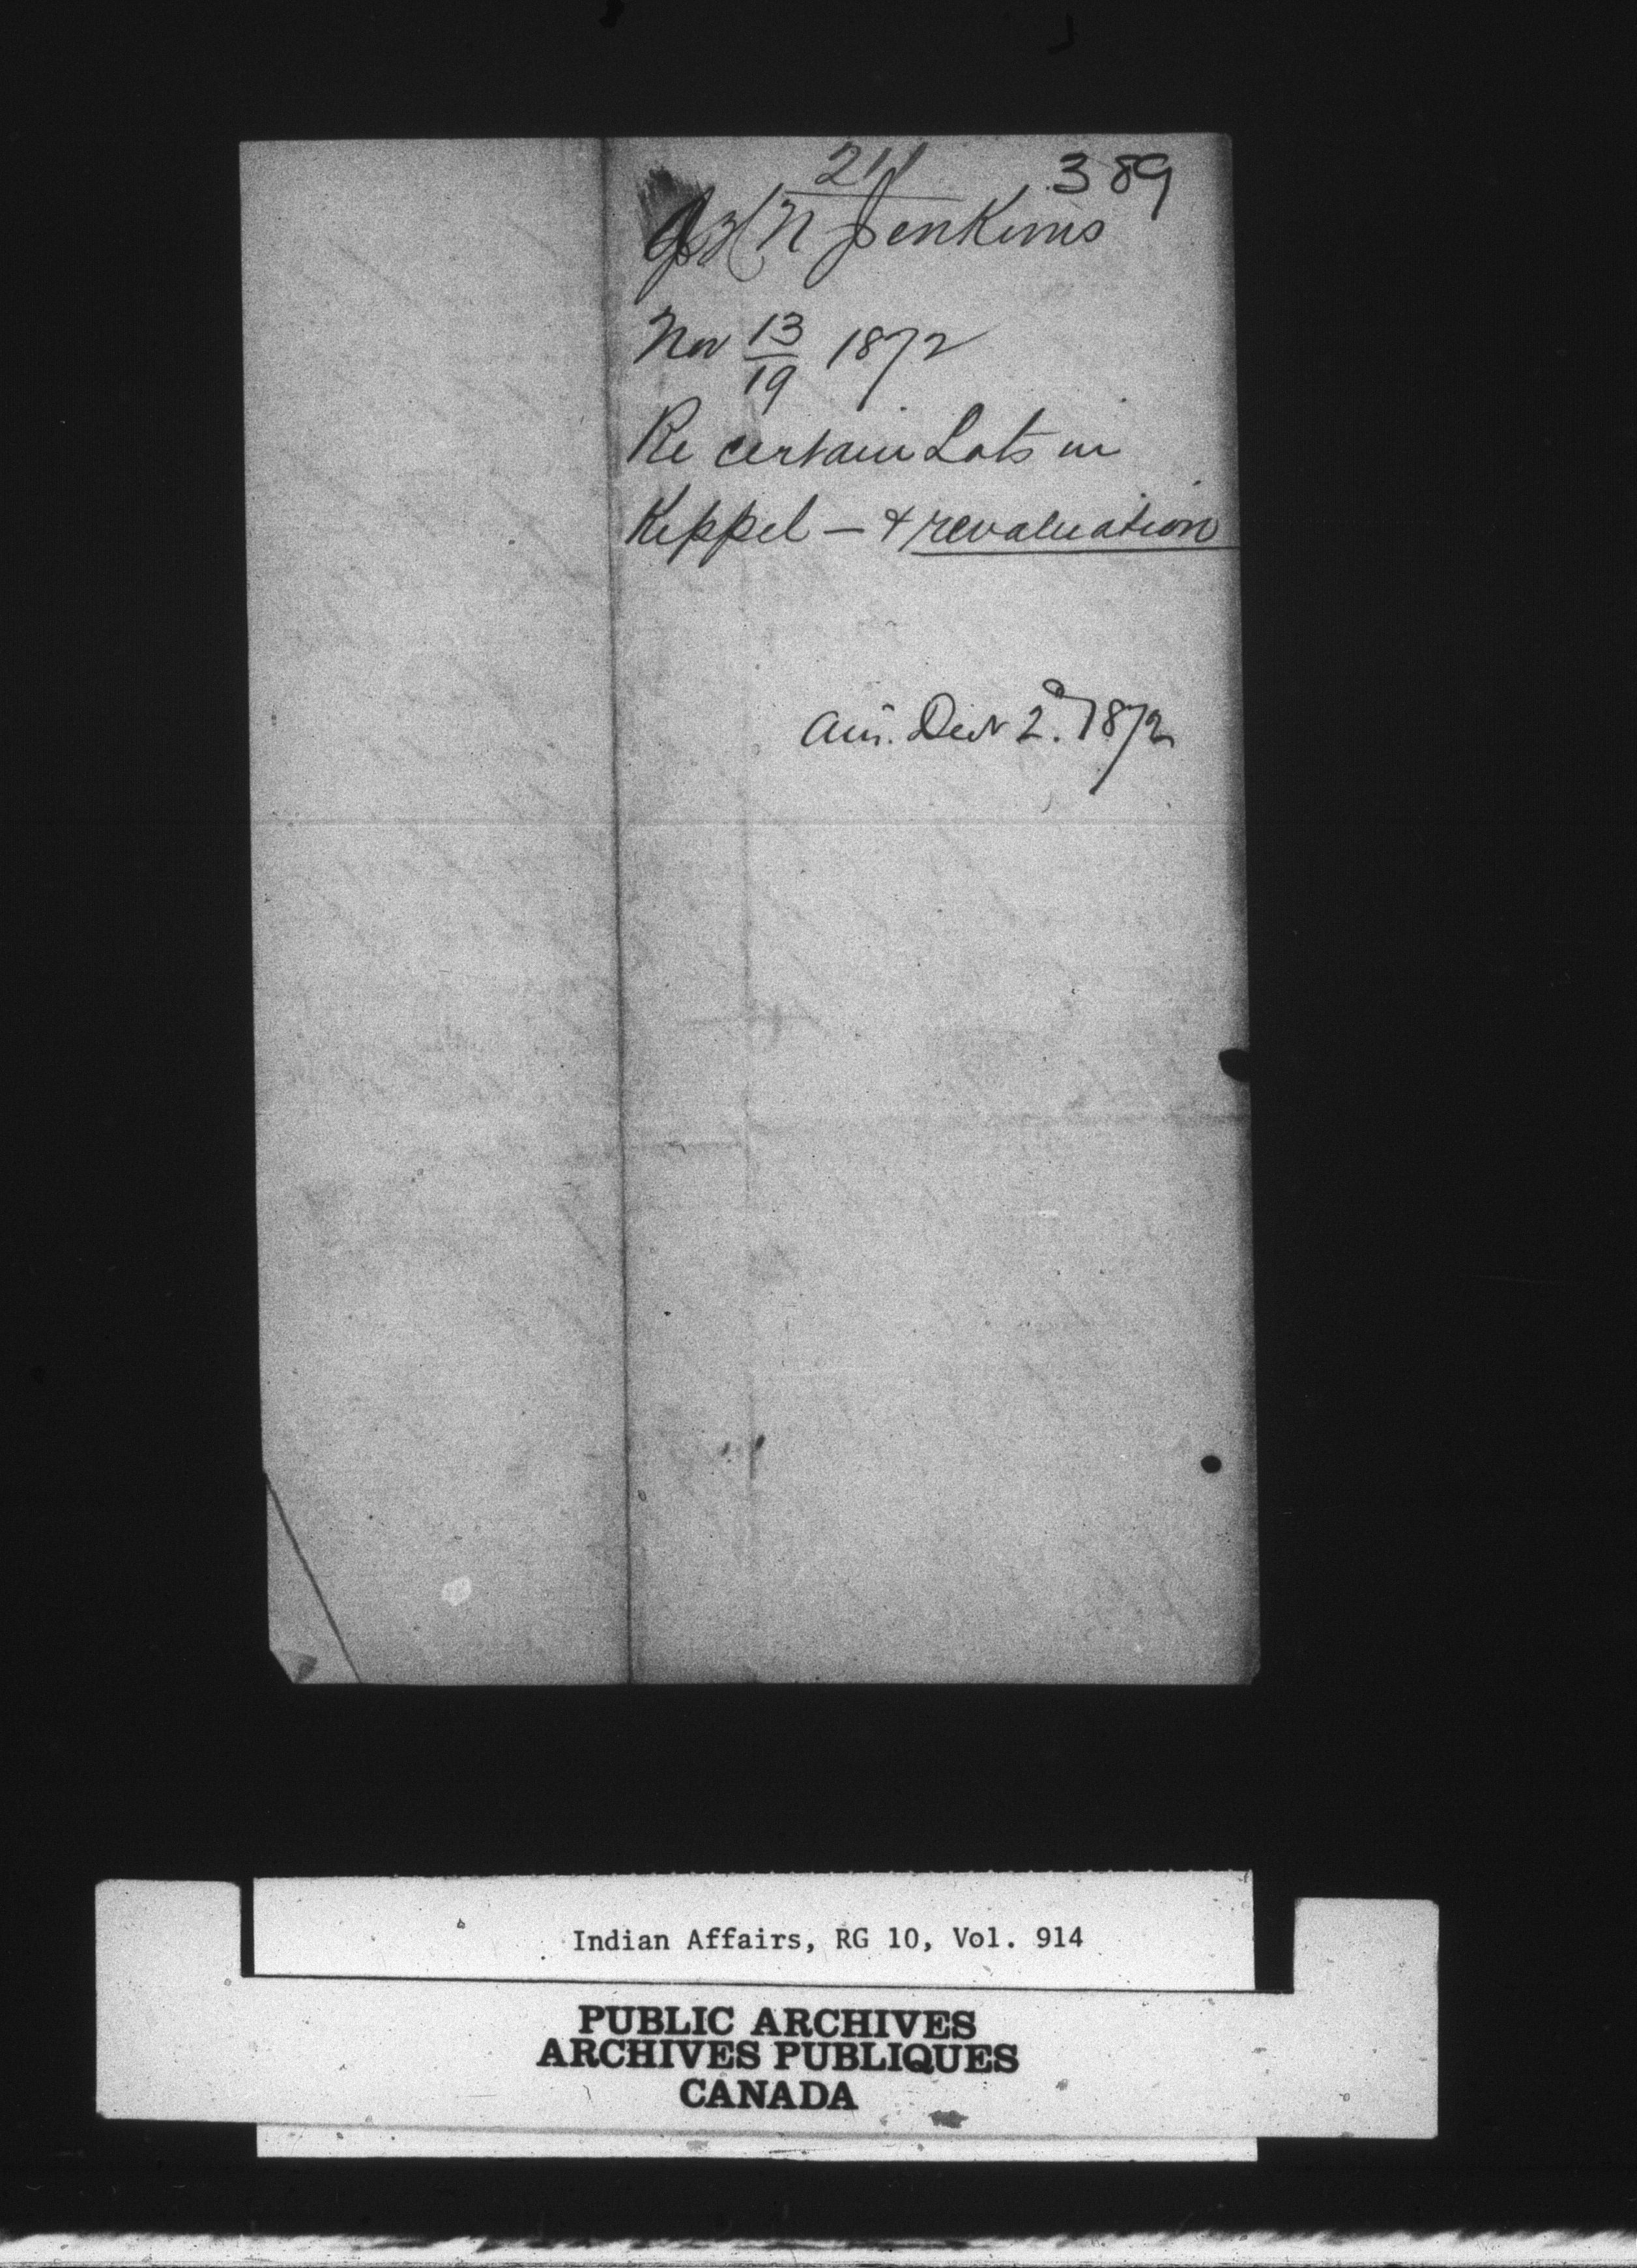 211 389
Jenkins
Nov 13/19 1872
Re certain Lots in
Keppel — & revaluation
Decr 2d 1872
Indian Affairs, RG 10, Vol. 914
PUBLIC ARCHIVES
ARCHIVES PUBLIQUES
CANADA